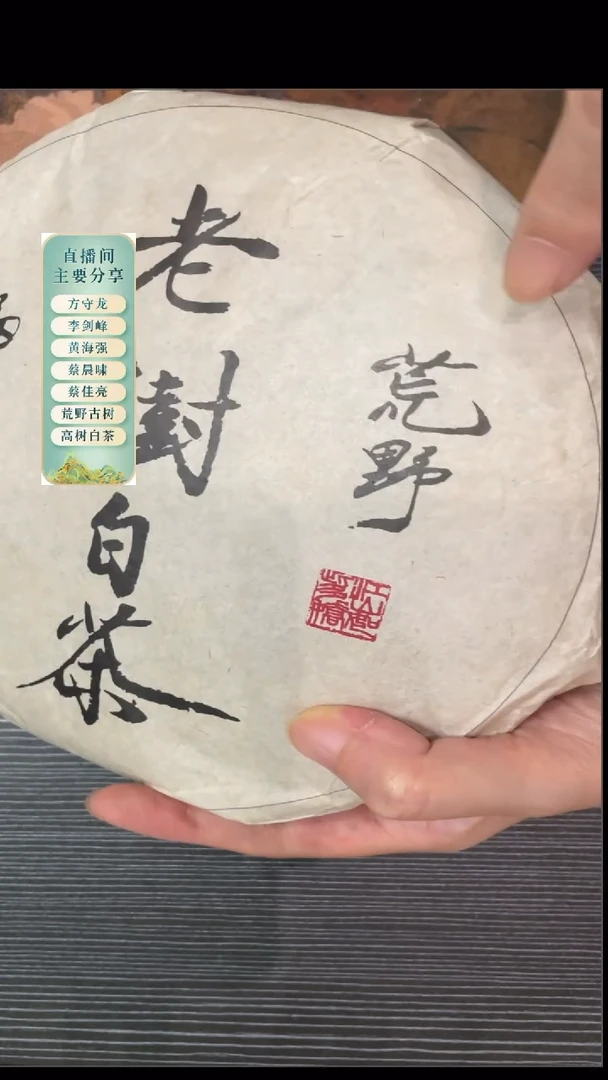 荒野
老樹白茶
直播间
主要分享
方守龙
李剑峰
黄海强
蔡晨啸
蔡佳亮
荒野古树
高树白茶